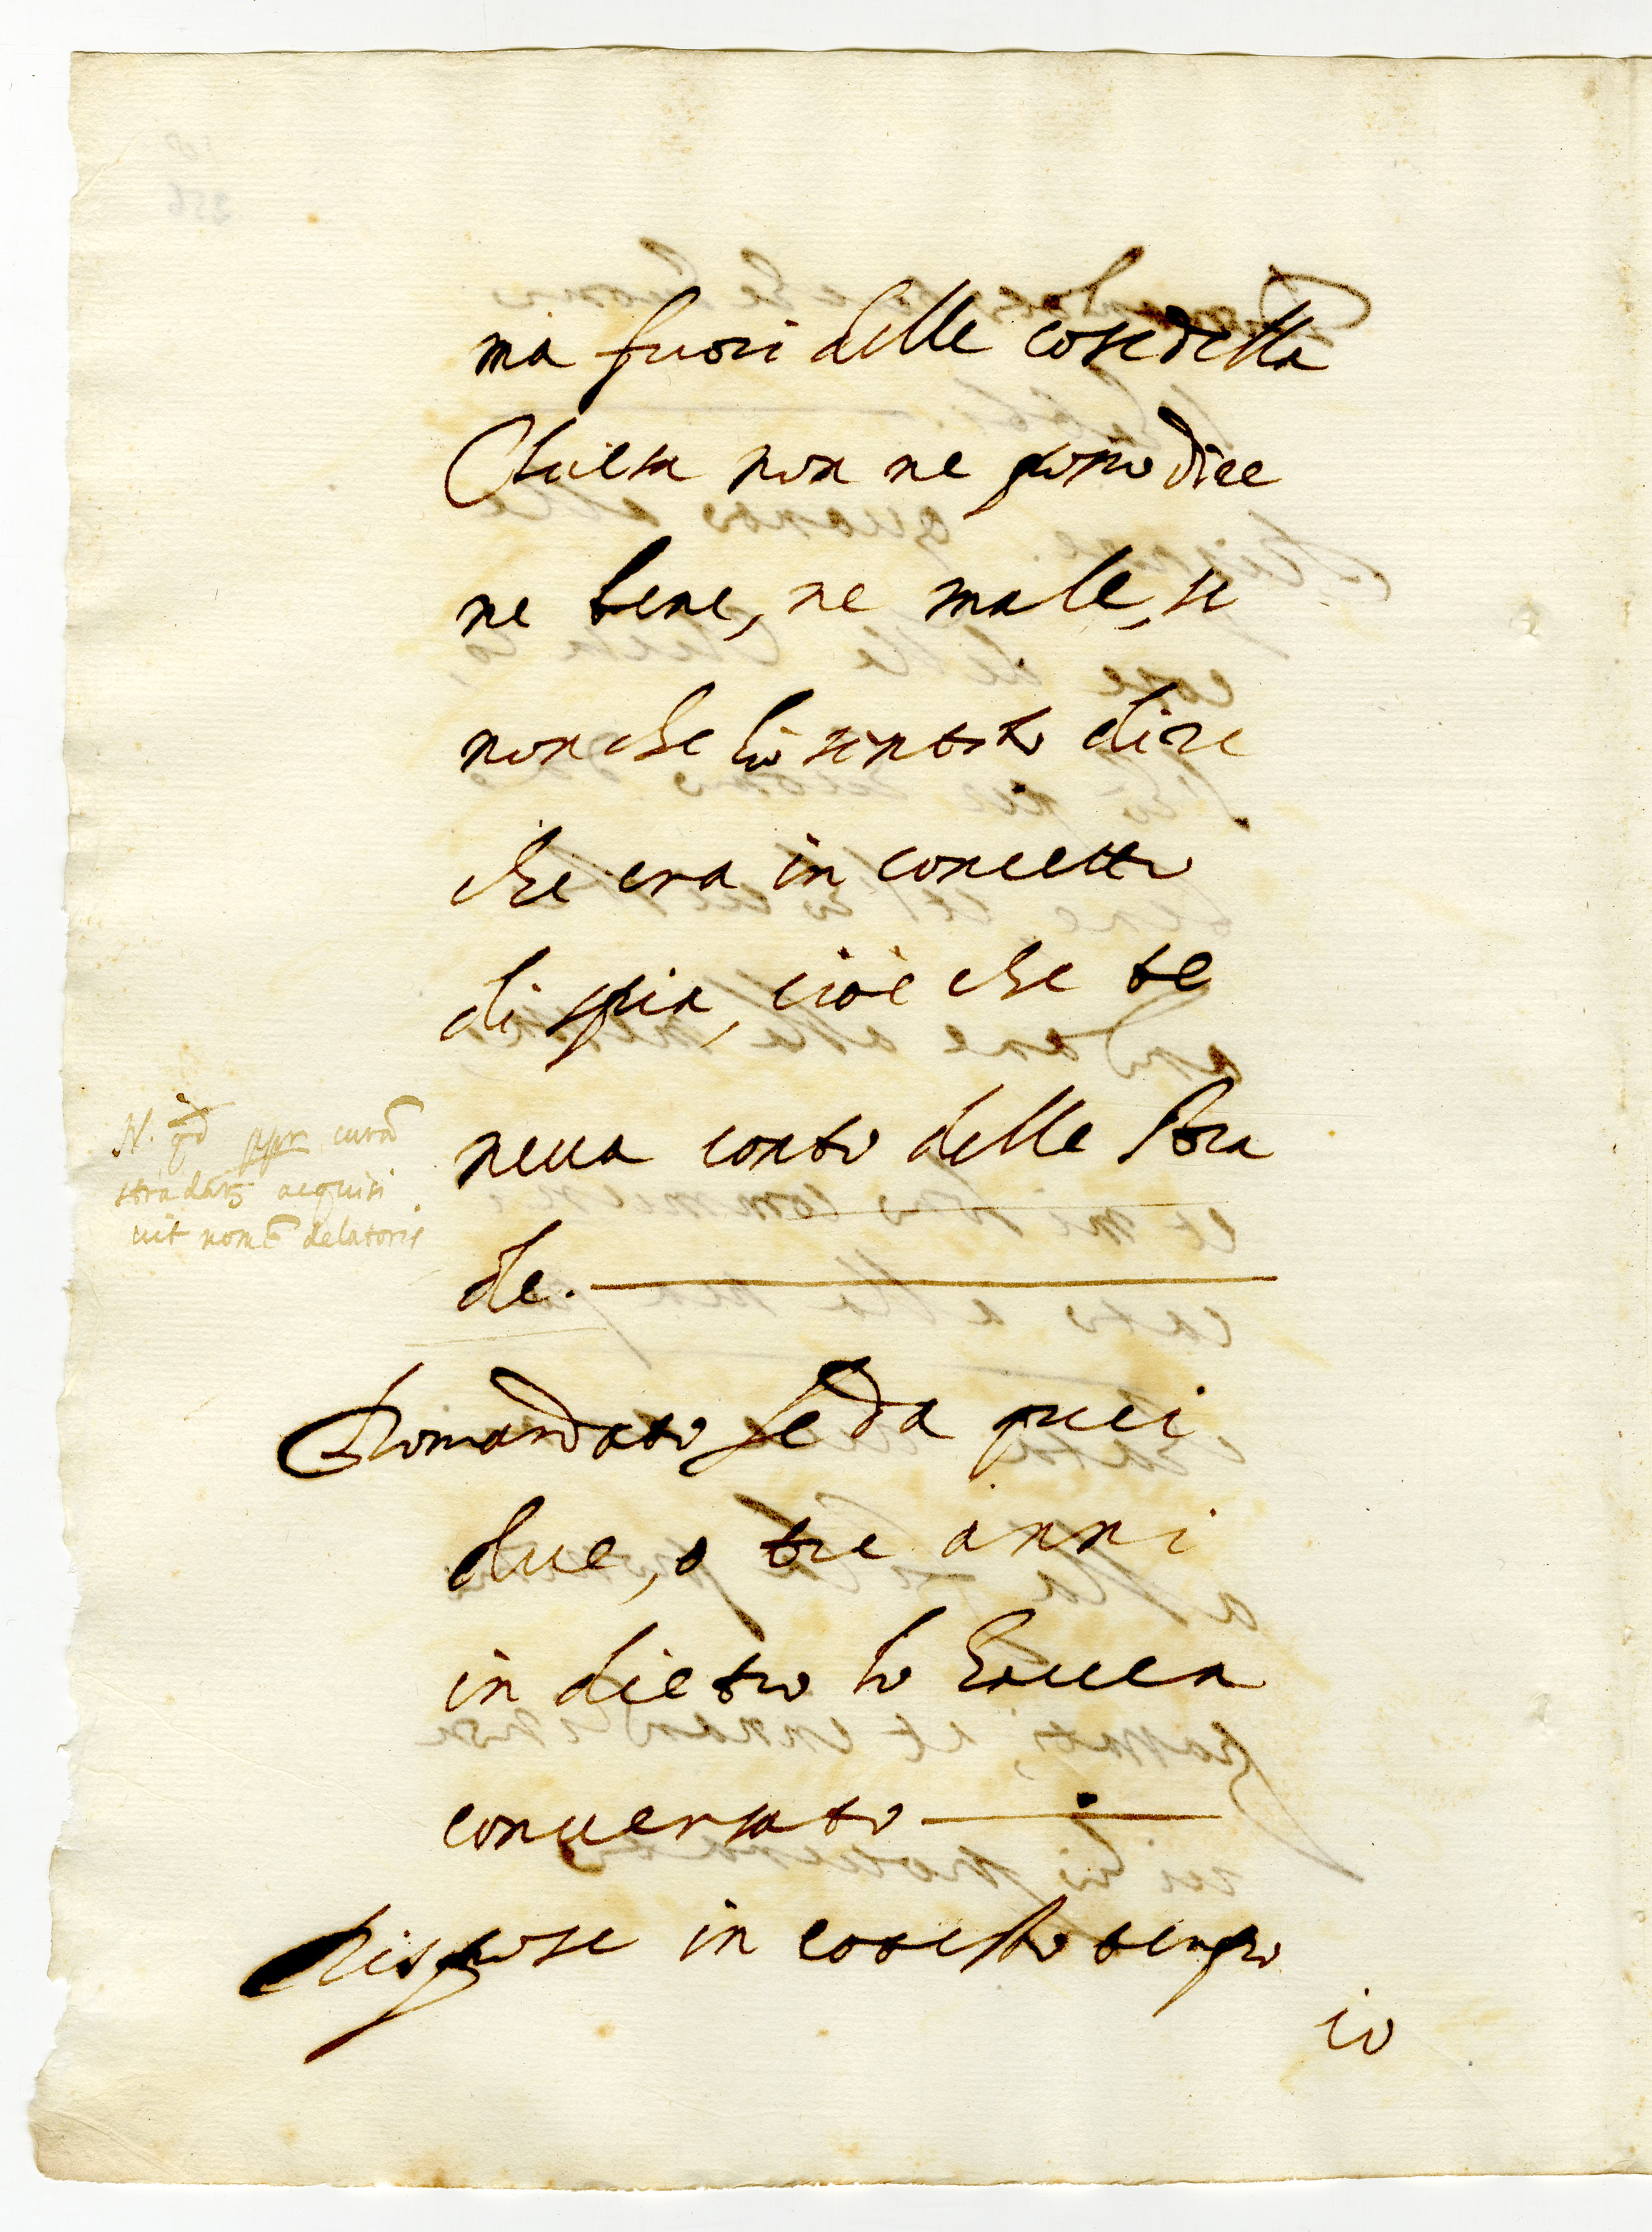 ma fuori delle cose della
Chiesa non ne posso dire
ne bene, ne male, se
non che hò sentito dire
che era in concetto
di spia, cioè che te
neua conto delle Stra
de.
N. qd ppr curã
stradarũ acquisi
uit nomẽ delatoris
Domandato se da quei
due, o tre anni
in dietro lo haueua
conuersato
Rispose in cotesto tempo
io